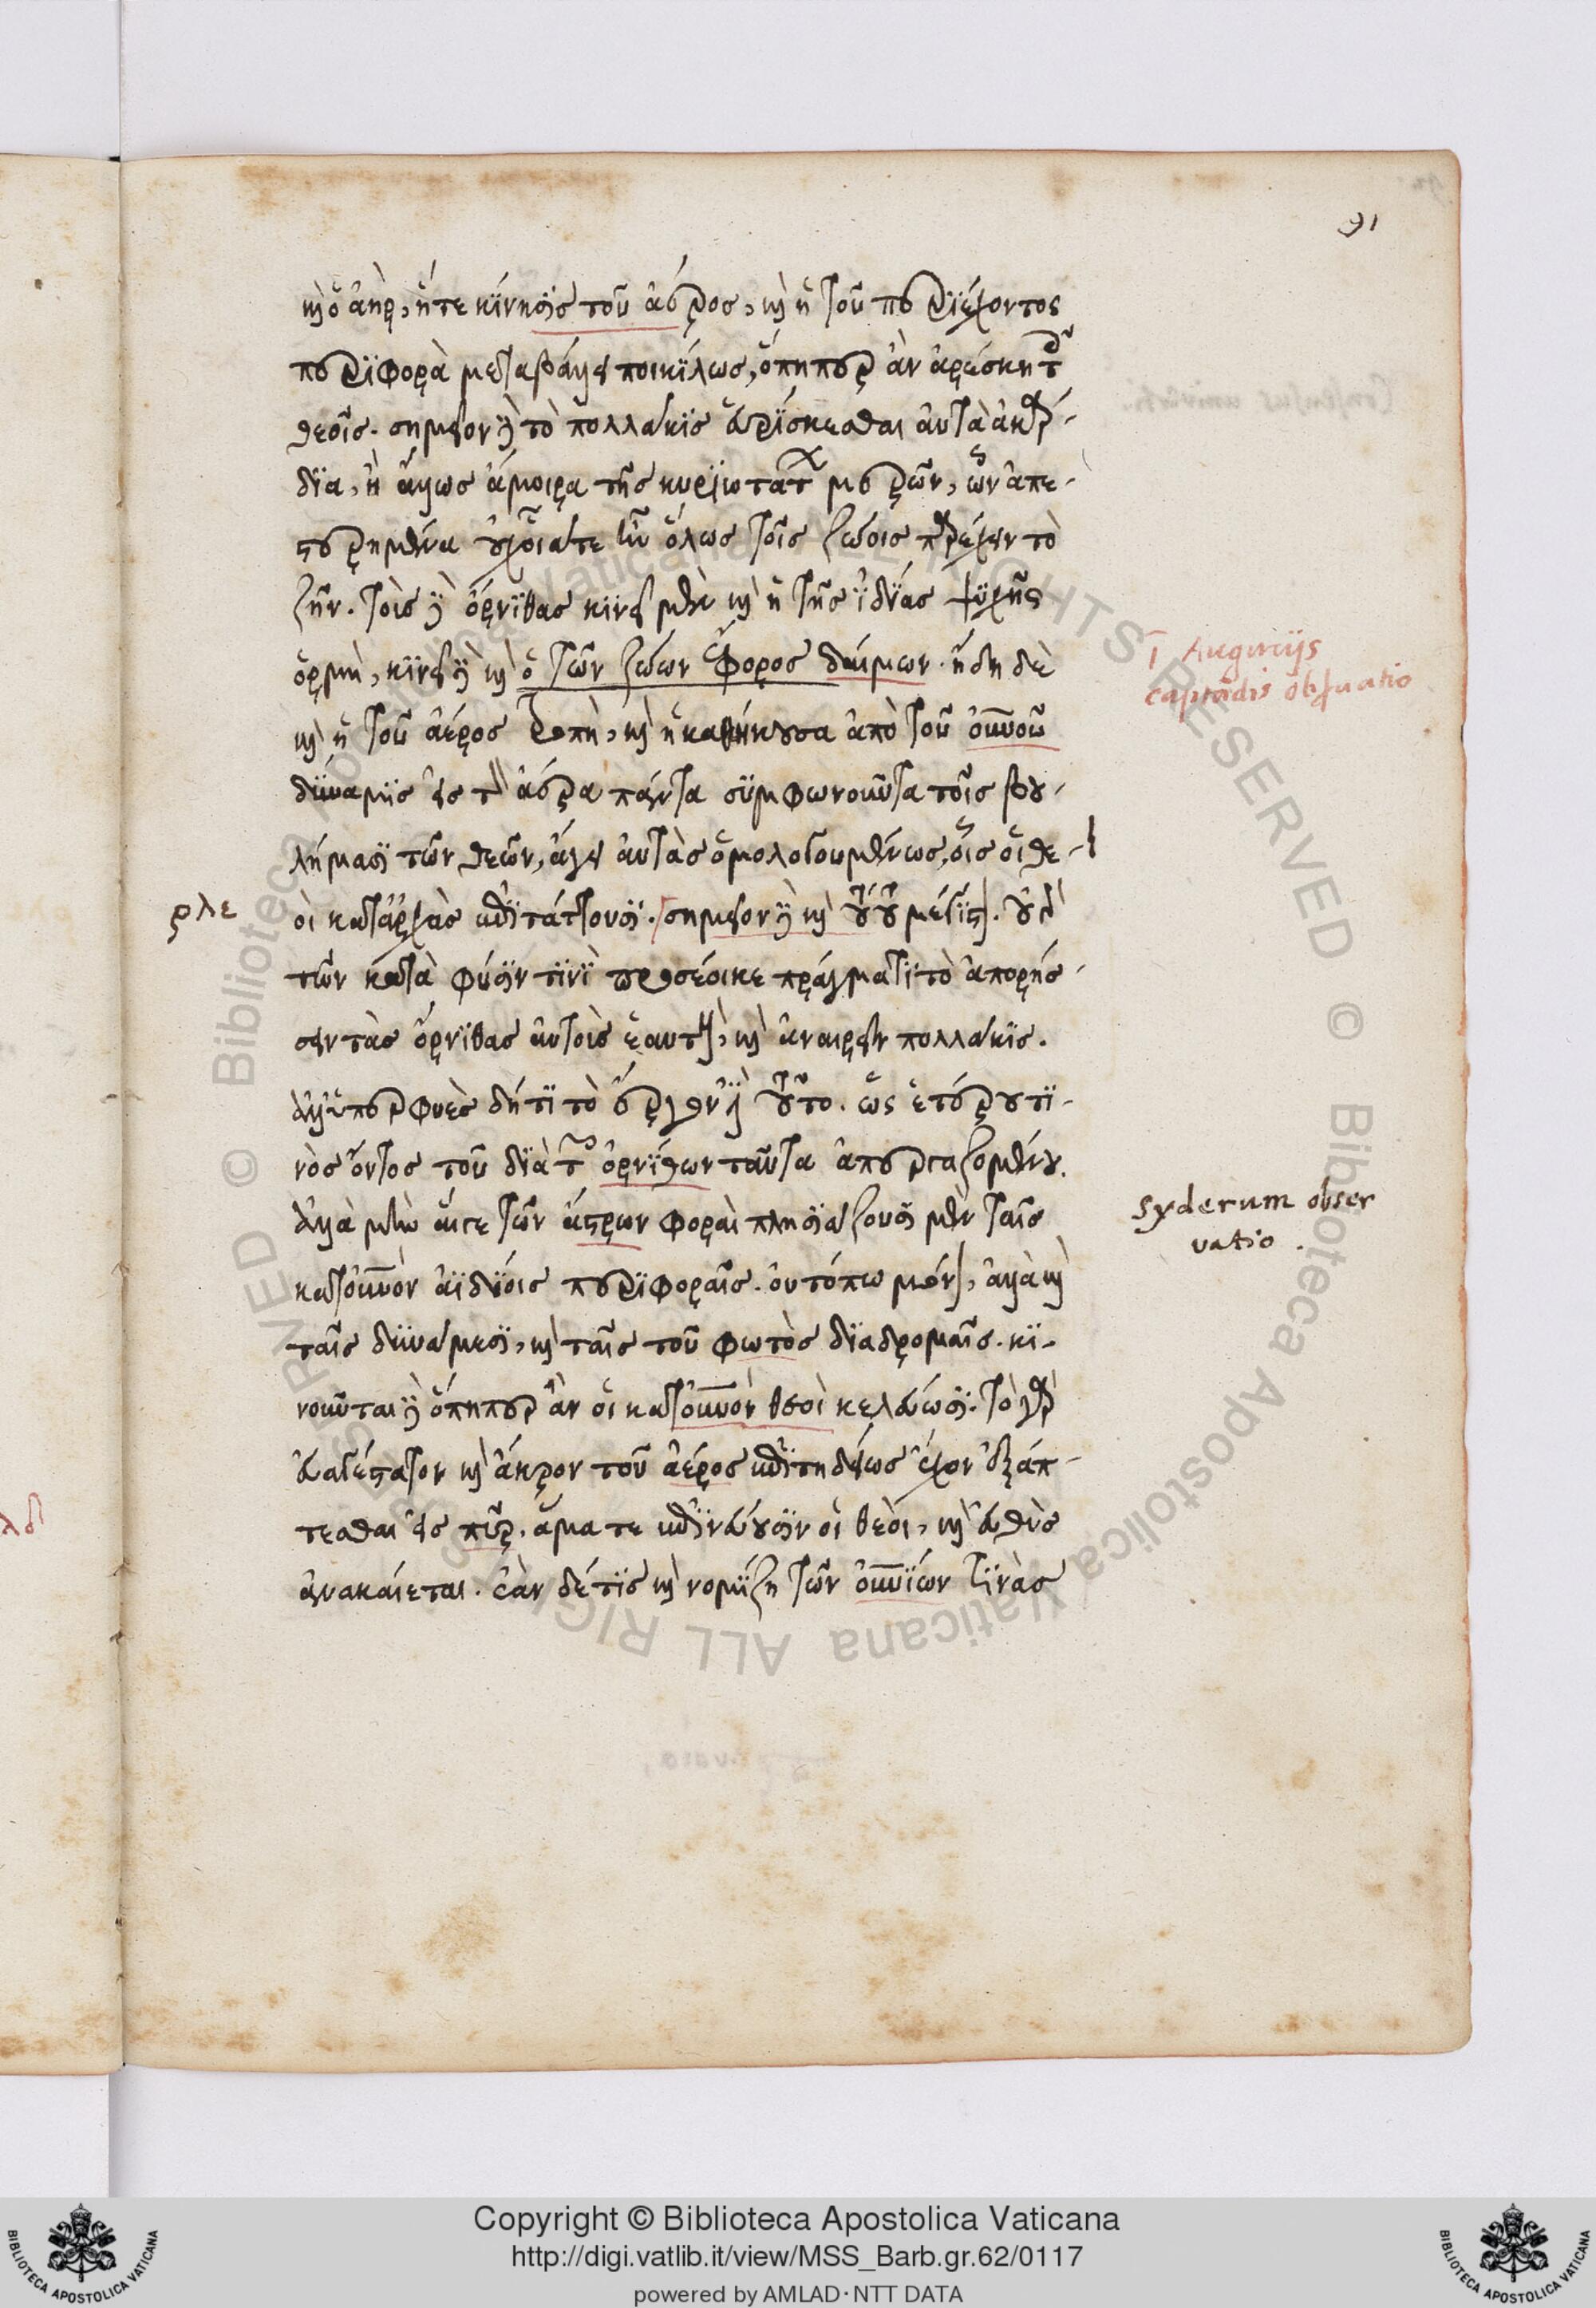 91
καὶ ὁ ἀήρ, ἥτε κίνησις τοῦ ἀέρος, καὶ ἡ τοῦ περιέχοντος
περιφορὰ μεταβάλλει ποικίλως, ὅπηπερ ἂν ἀρέσκη τοῖς
θεοῖς. σημεῖον δὲ τὸ πολλάκις εὑρίσκεσθαι αὐτὰ ἀκάρ-
δια, ἢ ἄλλως ἄμοιρα τῆς κυριωτάτων μερῶν, ὧν ἀπε-
στερημένα οὐχ οἷά τε ἦν ὅλως τοῖς ζώοις παρέχειν τὸ
ζῆν. τοὺς δὲ ὄρνιθας κινεῖ μὲν καὶ ἡ τῆς ἰδίας ψυχῆς
ὁρμὴ, κινεῖ δὲ καὶ ὁ τῶν ζώων ἔφορος δαίμων. ἤδη δὲ
καὶ ἡ τοῦ ἀέρος τροπὴ, καὶ ἡ καθήκουσα ἀπὸ τοῦ οὐνοῦ
δύναμις εἰς τὸν ἀέρα πάντα συμφωνοῦντα τοῖς βου-
λήμασι τῶν θεῶν, ἄγει αὐτὰς ὁμολογουμένως, οἷς οἱ θε-
ρλε
οὶ κατ᾽ ἀρχὰς ἐπιτάττουσι. σημεῖον δὲ καὶ τοῦτο μέγιστον. οὐδὲ
τῶν κατὰ φύσιν τινὶ προσέοικε πράγματι τὸ ἀπορήσ-
σειν τὰς ὄρνιθας αὐτοὺς ἑαυτοὺς, καὶ ἀναιρεῖν πολλάκις.
ἀλλ᾽ ὑπερφυὲς δή τι τὸ ἔργον ἐστὶ τοῦτο. ὡς ἑτέρου τι-
νὸς ὄντος τοῦ διὰ τῶν ὀρνίθων ταῦτα ἀπεργαζομένου.
ἀλλὰ μὴν αἵ γε τῶν ἄστρων φοραὶ πλησιάζουσι μὲν ταῖς
κατ᾽ οὐνὸν ἀϊδίοις περιφοραῖς. οὐ τόπω μόνον, ἀλλὰ καὶ
ταῖς δυνάμεσι, καὶ ταῖς τοῦ φωτὸς διαδρομαῖς. κι-
νοῦνται δὲ ὅπηπερ ἂν οἱ κατ᾽ οὐνὸν θεοὶ κελεύωσι. τὸ γὰρ
εὐαγέστατον καὶ ἄκρον τοῦ ἀέρος ἐπιτηδείως ἔχον ἐξάπ-
τεσθαι εἰς πῦρ. ἅμα τε ἐπινεύουσιν οἱ θεοὶ, καὶ εὐθὺς
ἀνακαίεται. ἐὰν δέ τις καὶ νομίζη τῶν οὐνίων τινὰς
Γ Auguriis
captādis obseruatio
syderum obser
vatio.
Copyright © Biblioteca Apostolica Vaticana
http://digi.vatlib.it/view/MSS_Barb.gr.62/0117
powered by AMLAD·NTT DATA
BIBLIOTECA APOSTOLICA VATICANA
BIBLIOTECA APOSTOLICA VATICANA
© Biblioteca Apostolica Vaticana ALL RIGHTS RESERVED © Biblioteca Apostolica Vaticana ALL RIGHTS RESERVED